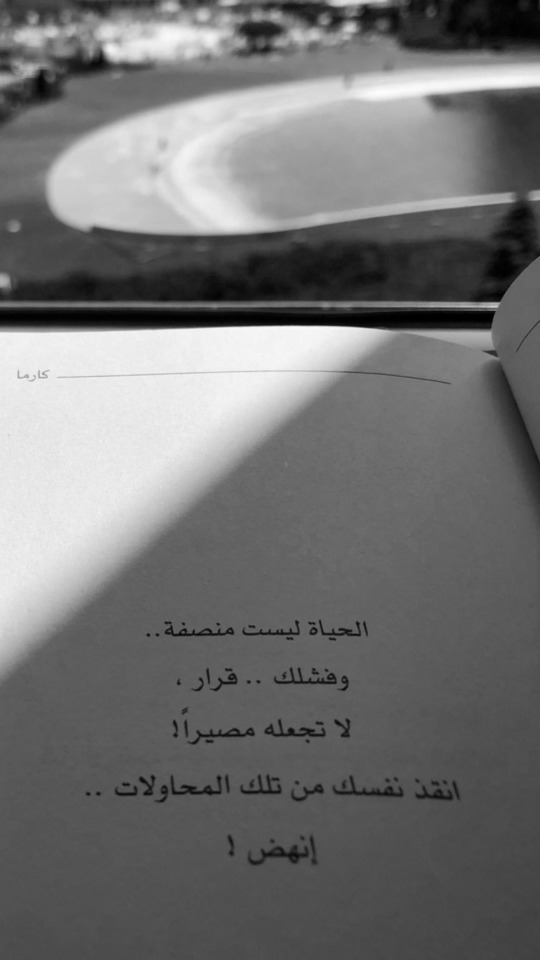 كارما
الحياة ليست منصفة..
وفشلك .. قرار ،
لا تجعله مصيراً!
انقذ نفسك من تلك المحاولات ..
إنهض !